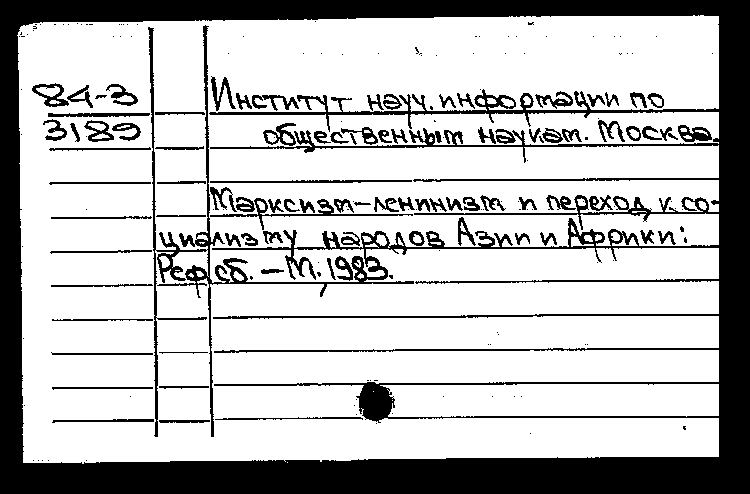 84-3
3189
Институт науч. информации по
общественным наукам. Москва.
Марксизм-ленинизм и переход к со-
циализму народов Азии и Африки:
Реф. сб. – М., 1983.